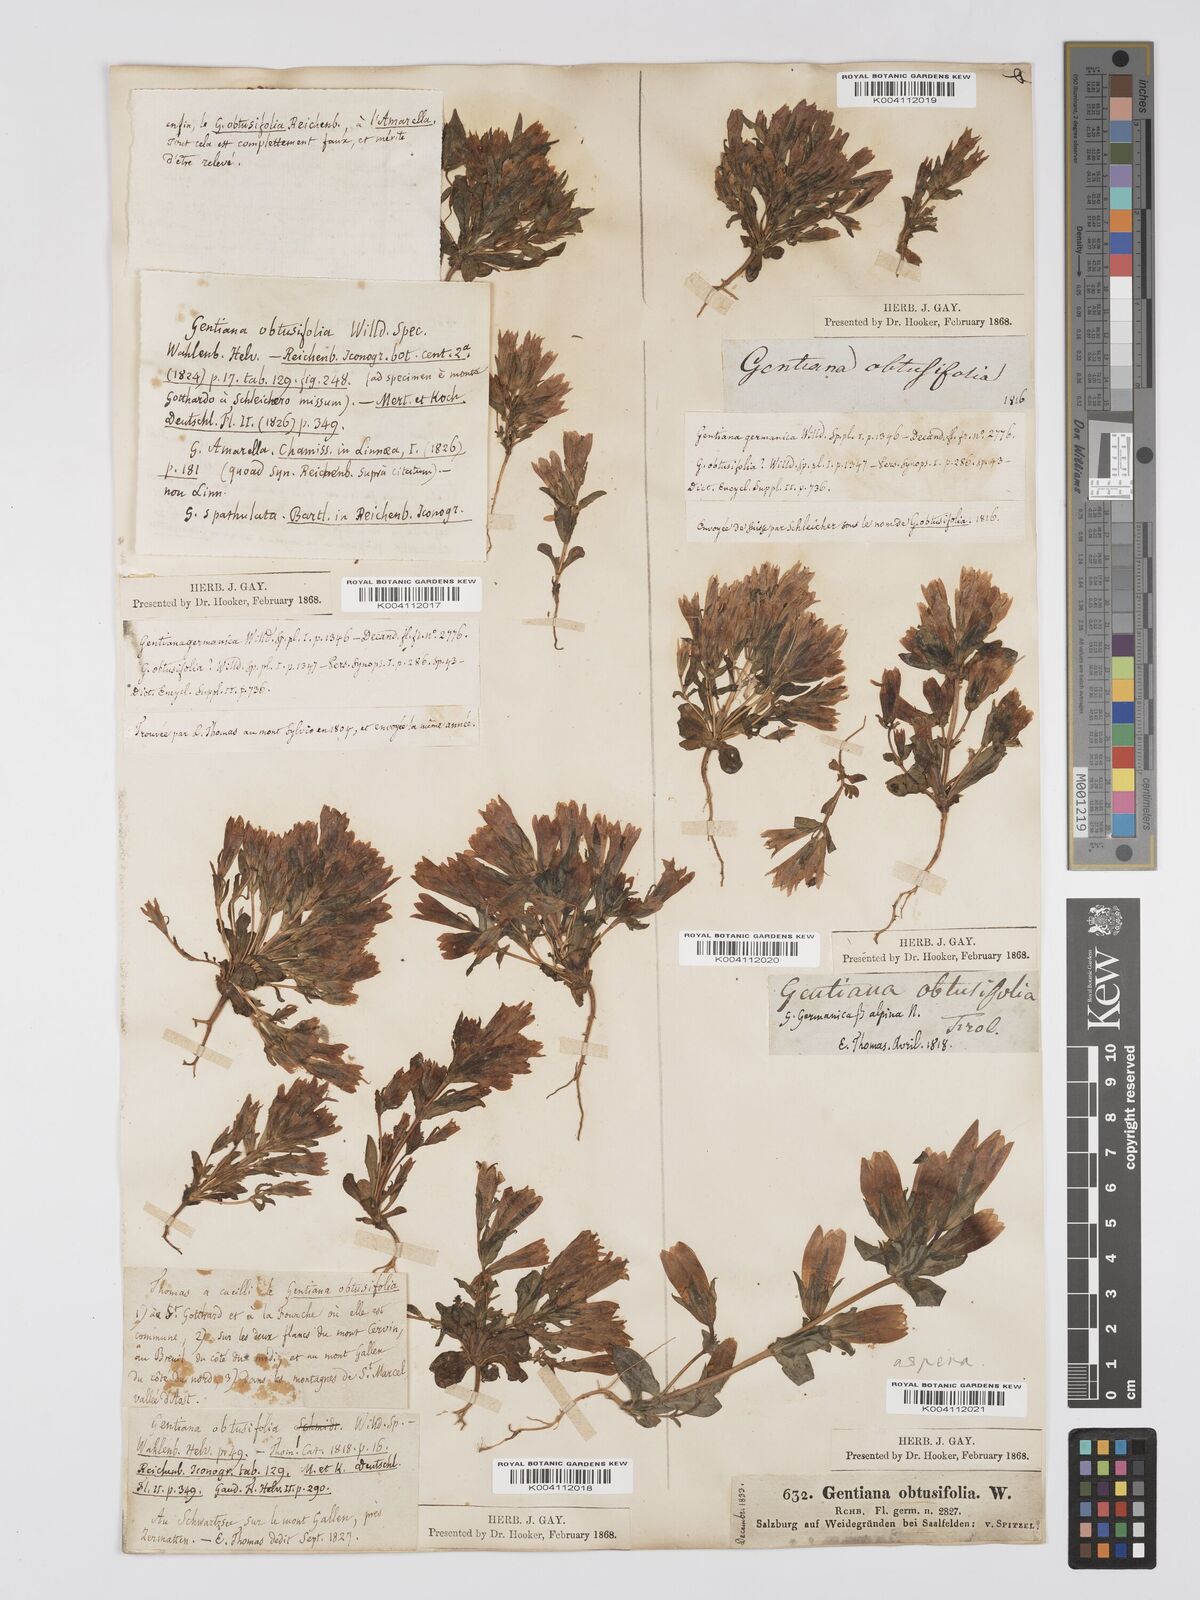 enfin, le G. obtusifolia Reichenb., à l'Amarella.
Tout cela est complettement faux, et mérite
d'être relevé.
Gentiana obtusifolia Willd. Spec.
Wahlenb. Helv. — Reichenb. Iconogr. bot. cent. 2ª.
(1824) p. 17. tab. 129. fig. 248. (ad specimen è monte
Gotthardo à Schleichero missum). — Mert. et Koch.
Deutschl. Fl. II. (1826) p. 349.
G. Amarella. Chamiss. in Linnæa, I. (1826)
p. 181 (quoad Syn. Reichenb. Suprà citatum). —
non Linn.
G. spathulata. Bartl. in Reichenb. Iconogr.
HERB. J. GAY.
Presented by Dr. Hooker, February 1868.
ROYAL BOTANIC GARDENS KEW
K004112017
Gentiana germanica Willd. Sp. pl. I. p. 1346 — Decand. fl. fr. nº. 2776.
G. obtusifolia? Willd. Sp. pl. I. p. 1347 — Pers. Synops. I. p. 286. sp. 43 —
Dict. Encycl. Suppl. II. p. 736.
Trouvée par L. Thomas au mont Sylvio en 1804, et envoyée la même année.
Thomas a cueilli le Gentiana obtusifolia
1) au St. Gotthard et à la Fourche où elle est
commune, 2) sur les deux flancs du mont Cervin,
au Breuil du côté du midi, et au mont Gallen
du côté du nord, 3) dans les montagnes de St. Marcel
vallée d'Aost.
Gentiana obtusifolia Schmidt. Willd. Sp. —
Wahlenb. Helv. p. 49. — Thom! Cat. 1818. p. 16.
Reichenb. Iconogr. tab. 129. M. et K. Deutschl.
Fl. II. p. 349. Gaud. Fl. Helv. II. p. 290.
Au Schwartzsee sur le mont Gallen, près
Zermatten. — E. Thomas dedit Sept. 1827.
ROYAL BOTANIC GARDENS KEW
K004112018
HERB. J. GAY.
Presented by Dr. Hooker, February 1868.
ROYAL BOTANIC GARDENS KEW
K004112019
HERB. J. GAY.
Presented by Dr. Hooker, February 1868.
Gentiana obtusifolia
1816
Gentiana germanica Willd. Sp. pl. I. p. 1346 — Decand. fl. fr. nº. 2776.
G. obtusifolia? Willd. sp. pl. I. p. 1347 — Pers. Synops. I. p. 286. sp. 43 —
Dict. Encycl. Suppl. II. p. 736.
Envoyée de Suisse par Schleicher sous le nom de G. obtusifolia. 1816.
ROYAL BOTANIC GARDENS KEW
K004112020
HERB. J. GAY.
Presented by Dr. Hooker, February 1868.
Gentiana obtusifolia
G. Germanica β alpina N.
Tirol.
E. Thomas. Avril. 1818.
aspera.
ROYAL BOTANIC GARDENS KEW
K004112021
HERB. J. GAY.
Presented by Dr. Hooker, February 1868.
Decembri 1833.
632. Gentiana obtusifolia. W.
RCHB. Fl. germ. n. 2827.
Salzburg auf Weidegründen bei Saalfelden: v. SPITZEL.
inches
centimeters
Don Williams
M001219
Royal Botanic Gardens
Kew
0 1 2 3 4 5 6 7 8 9 10
cm
copyright reserved